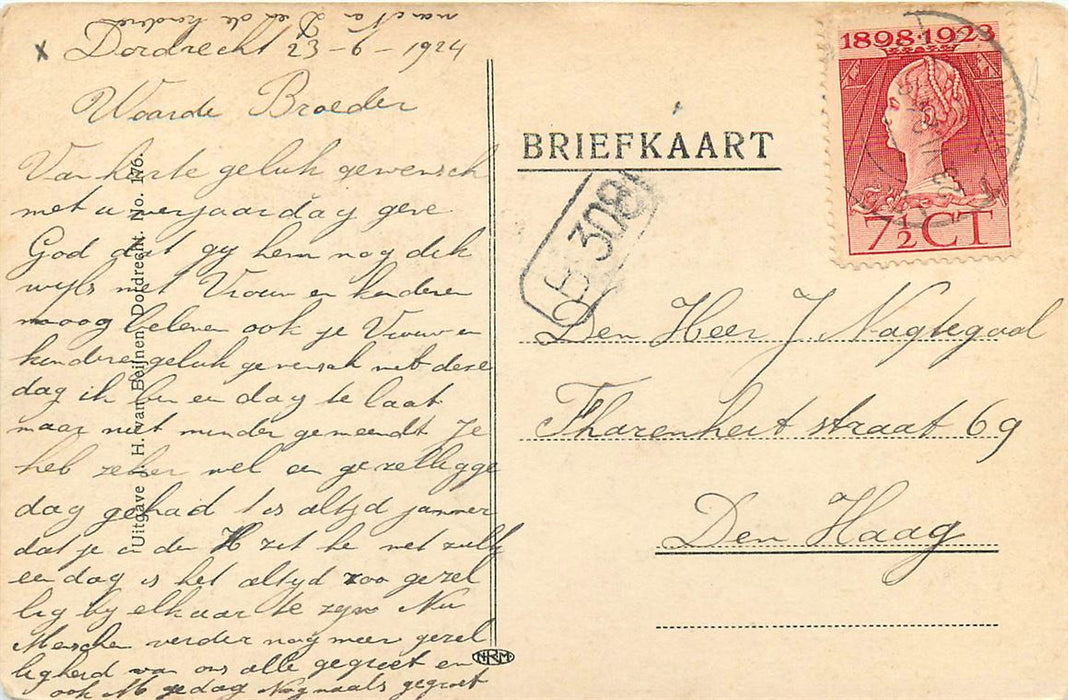 Dordrecht 23-6-1924
Waarde Broeder
Van harte geluk gewensch
met u verjaardag geve
God dat gy hem nog dik
wyls met Vrouw en kinderen
moog beleven ook je Vrouw en
kinderen geluk gewensch met deze
dag ik ben en dag te laat
maar niet minder gemeendt Je
heb zeker wel en gezelligge
dag gehad t is altyd jammer
dat je in den H zit he met zulk
een dag is het altyd zoo gezel
lig by elkaar te zyn Nu
Menschen verder nog meer gezel
ligheid van ons alle gegroet en
ook M gedag Nogmaals gegroet
Uitgave J. H. van Beijnen, Dordrecht. No. 176.
NRM
BRIEFKAART
1898·1923
7½ CT
B 308
Den Heer J. Nagtegaal
Fharenheit straat 69
Den Haag